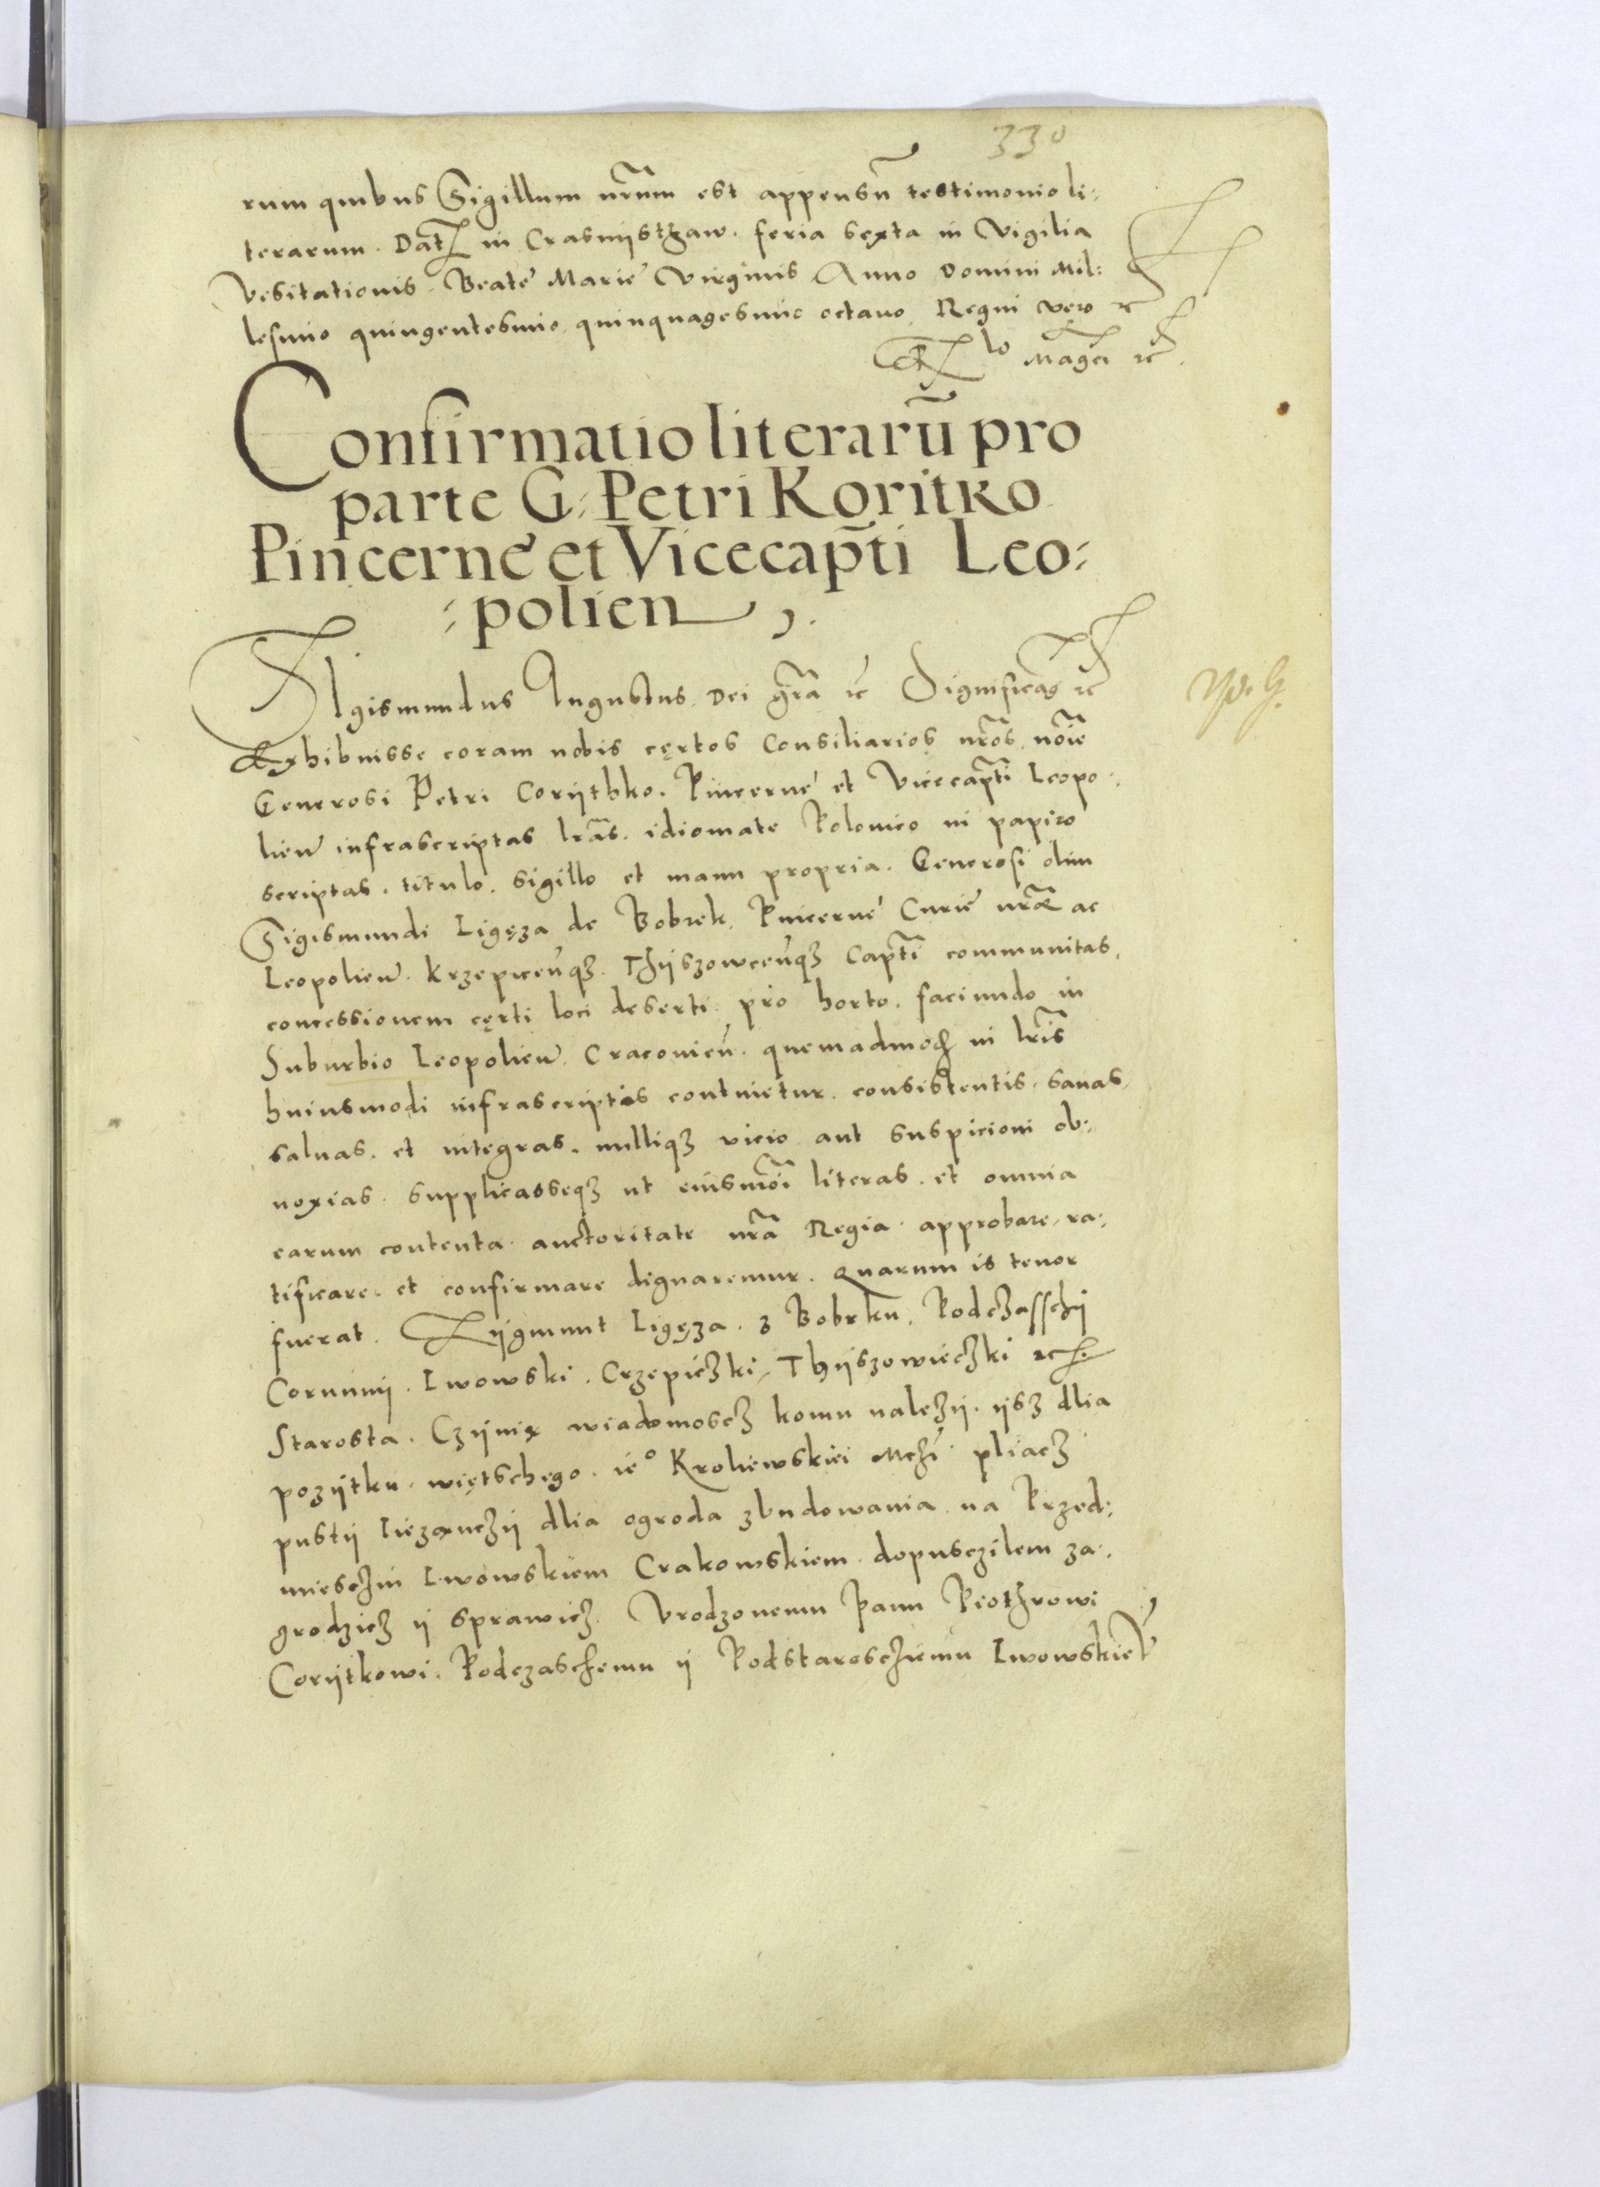 330
rum quibus Sigillum nrũm est appensũ testimonio li⸗
terarum. Dat in Crasnijsthaw. feria sexta in Vigilia
Vesitationis Beatę Marię Virginis Anno Domini Mil⸗
lesimo quingentesimo quinquagesimo octauo. Regni vero ꝛc
lo Magci ꝛc
Confirmatio literarũ pro
parte G. Petri Koritko
Pincernę et Vicecapti Leo⸗
⸗polien
Sigismundus Augustus Dei gra ꝛc Significag ꝛc
Exhibuisse coram nobis certos Consiliarios nros noie
Generosi Petri Corijthko. Pincernę et Vicecapti Leopo⸗
lien infrascriptas lras. idiomate Polonico in papiro
scriptas. titulo. sigillo et manu propria. Generosi olim
Sigismundi Ligęza de Bobrek. Pincernę Curię nræ ac
Leopolien. Krzepicenqꝫ. Thijszowcenqꝫ Capti communitas.
concessionem certi loci deserti pro horto. faciundo in
Suburbio Leopolien. Cracovien. quemadmod in lris
huiusmodi infrascriptis continetur. consistentis. sanas.
saluas. et integras. nulliqꝫ vicio aut suspicioni ob⸗
noxias. supplicasseqꝫ ut eiusmoi literas. et omnia
earum contenta auctoritate nra Regia approbare. ra⸗
tificare. et confirmare dignaremur. Quarum is tenor
fuerat. Zijgmunt Ligęza. z Bobrku. Podczasschij
Corunnij. Lwowski. Crzepiczki, Thijszowieczki ꝛc.
Starosta. Czijnię wiadomoscz komu nalezij. ijsz dlia
pozijtku więtschego. ie° Kroliewskiei Mczi pliacz
pustij Liezączij dlia ogroda zbudowania na Przed⸗
miescziu Lwowskiem Crakowskiem. dopusczilem za⸗
grodzicz ij sprawicz. Vrodzonemu Panu Piothrowi
Corijtkowi. Podczaschemu ij Podstarosczięmu Lwowskię